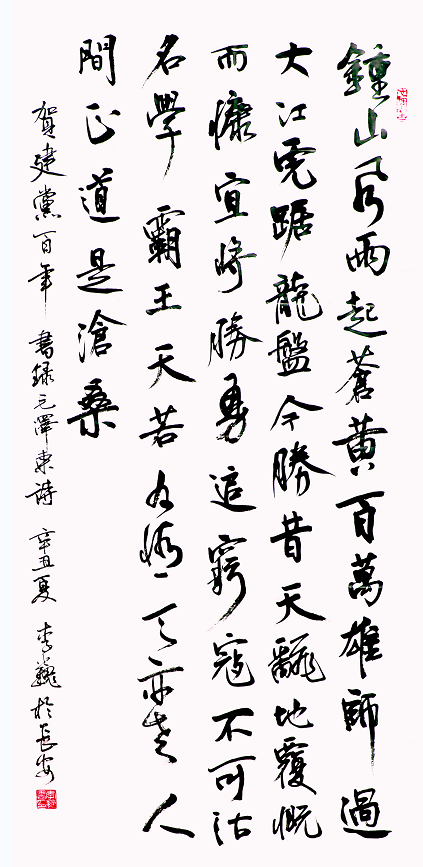 鍾山風雨起蒼黃百萬雄師過
大江虎踞龍盤今勝昔天翻地覆慨
而慷宜將勝勇追窮寇不可沽
名學霸王天若有情天亦老人
間正道是滄桑
賀建黨百年 書録毛澤東詩 辛丑夏 李巍於長安